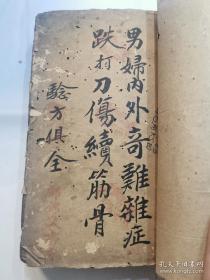 男婦內外奇難雜症
跌打刀傷續筋骨
驗方俱全